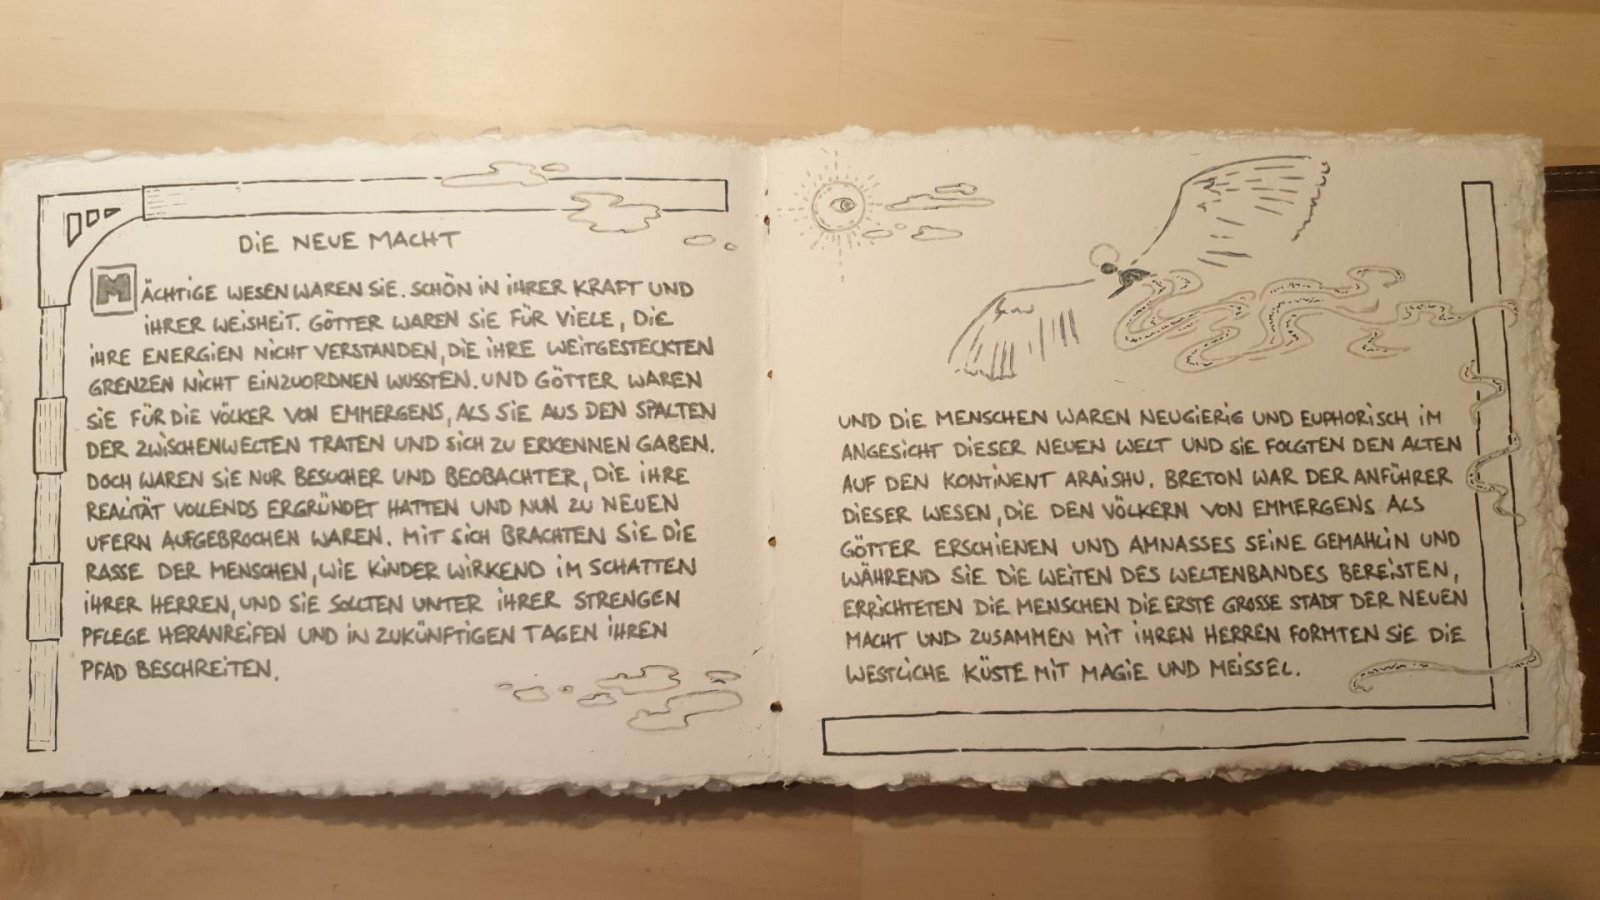 DIE NEUE MACHT
MÄCHTIGE WESEN WAREN SIE. SCHÖN IN IHRER KRAFT UND
IHRER WEISHEIT. GÖTTER WAREN SIE FÜR VIELE, DIE
IHRE ENERGIEN NICHT VERSTANDEN, DIE IHRE WEITGESTECKTEN
GRENZEN NICHT EINZUORDNEN WUSSTEN. UND GÖTTER WAREN
SIE FÜR DIE VÖLKER VON EMMERGENS, ALS SIE AUS DEN SPALTEN
DER ZWISCHENWELTEN TRATEN UND SICH ZU ERKENNEN GABEN.
DOCH WAREN SIE NUR BESUCHER UND BEOBACHTER, DIE IHRE
REALITÄT VOLLENDS ERGRÜNDET HATTEN UND NUN ZU NEUEN
UFERN AUFGEBROCHEN WAREN. MIT SICH BRACHTEN SIE DIE
RASSE DER MENSCHEN, WIE KINDER WIRKEND IM SCHATTEN
IHRER HERREN, UND SIE SOLLTEN UNTER IHRER STRENGEN
PFLEGE HERANREIFEN UND IN ZUKÜNFTIGEN TAGEN IHREN
PFAD BESCHREITEN.
UND DIE MENSCHEN WAREN NEUGIERIG UND EUPHORISCH IM
ANGESICHT DIESER NEUEN WELT UND SIE FOLGTEN DEN ALTEN
AUF DEN KONTINENT ARAISHU. BRETON WAR DER ANFÜHRER
DIESER WESEN, DIE DEN VÖLKERN VON EMMERGENS ALS
GÖTTER ERSCHIENEN UND AMNASSES SEINE GEMAHLIN UND
WÄHREND SIE DIE WEITEN DES WELTENBANDES BEREISTEN,
ERRICHTETEN DIE MENSCHEN DIE ERSTE GROSSE STADT DER NEUEN
MACHT UND ZUSAMMEN MIT IHREN HERREN FORMTEN SIE DIE
WESTLICHE KÜSTE MIT MAGIE UND MEISSEL.